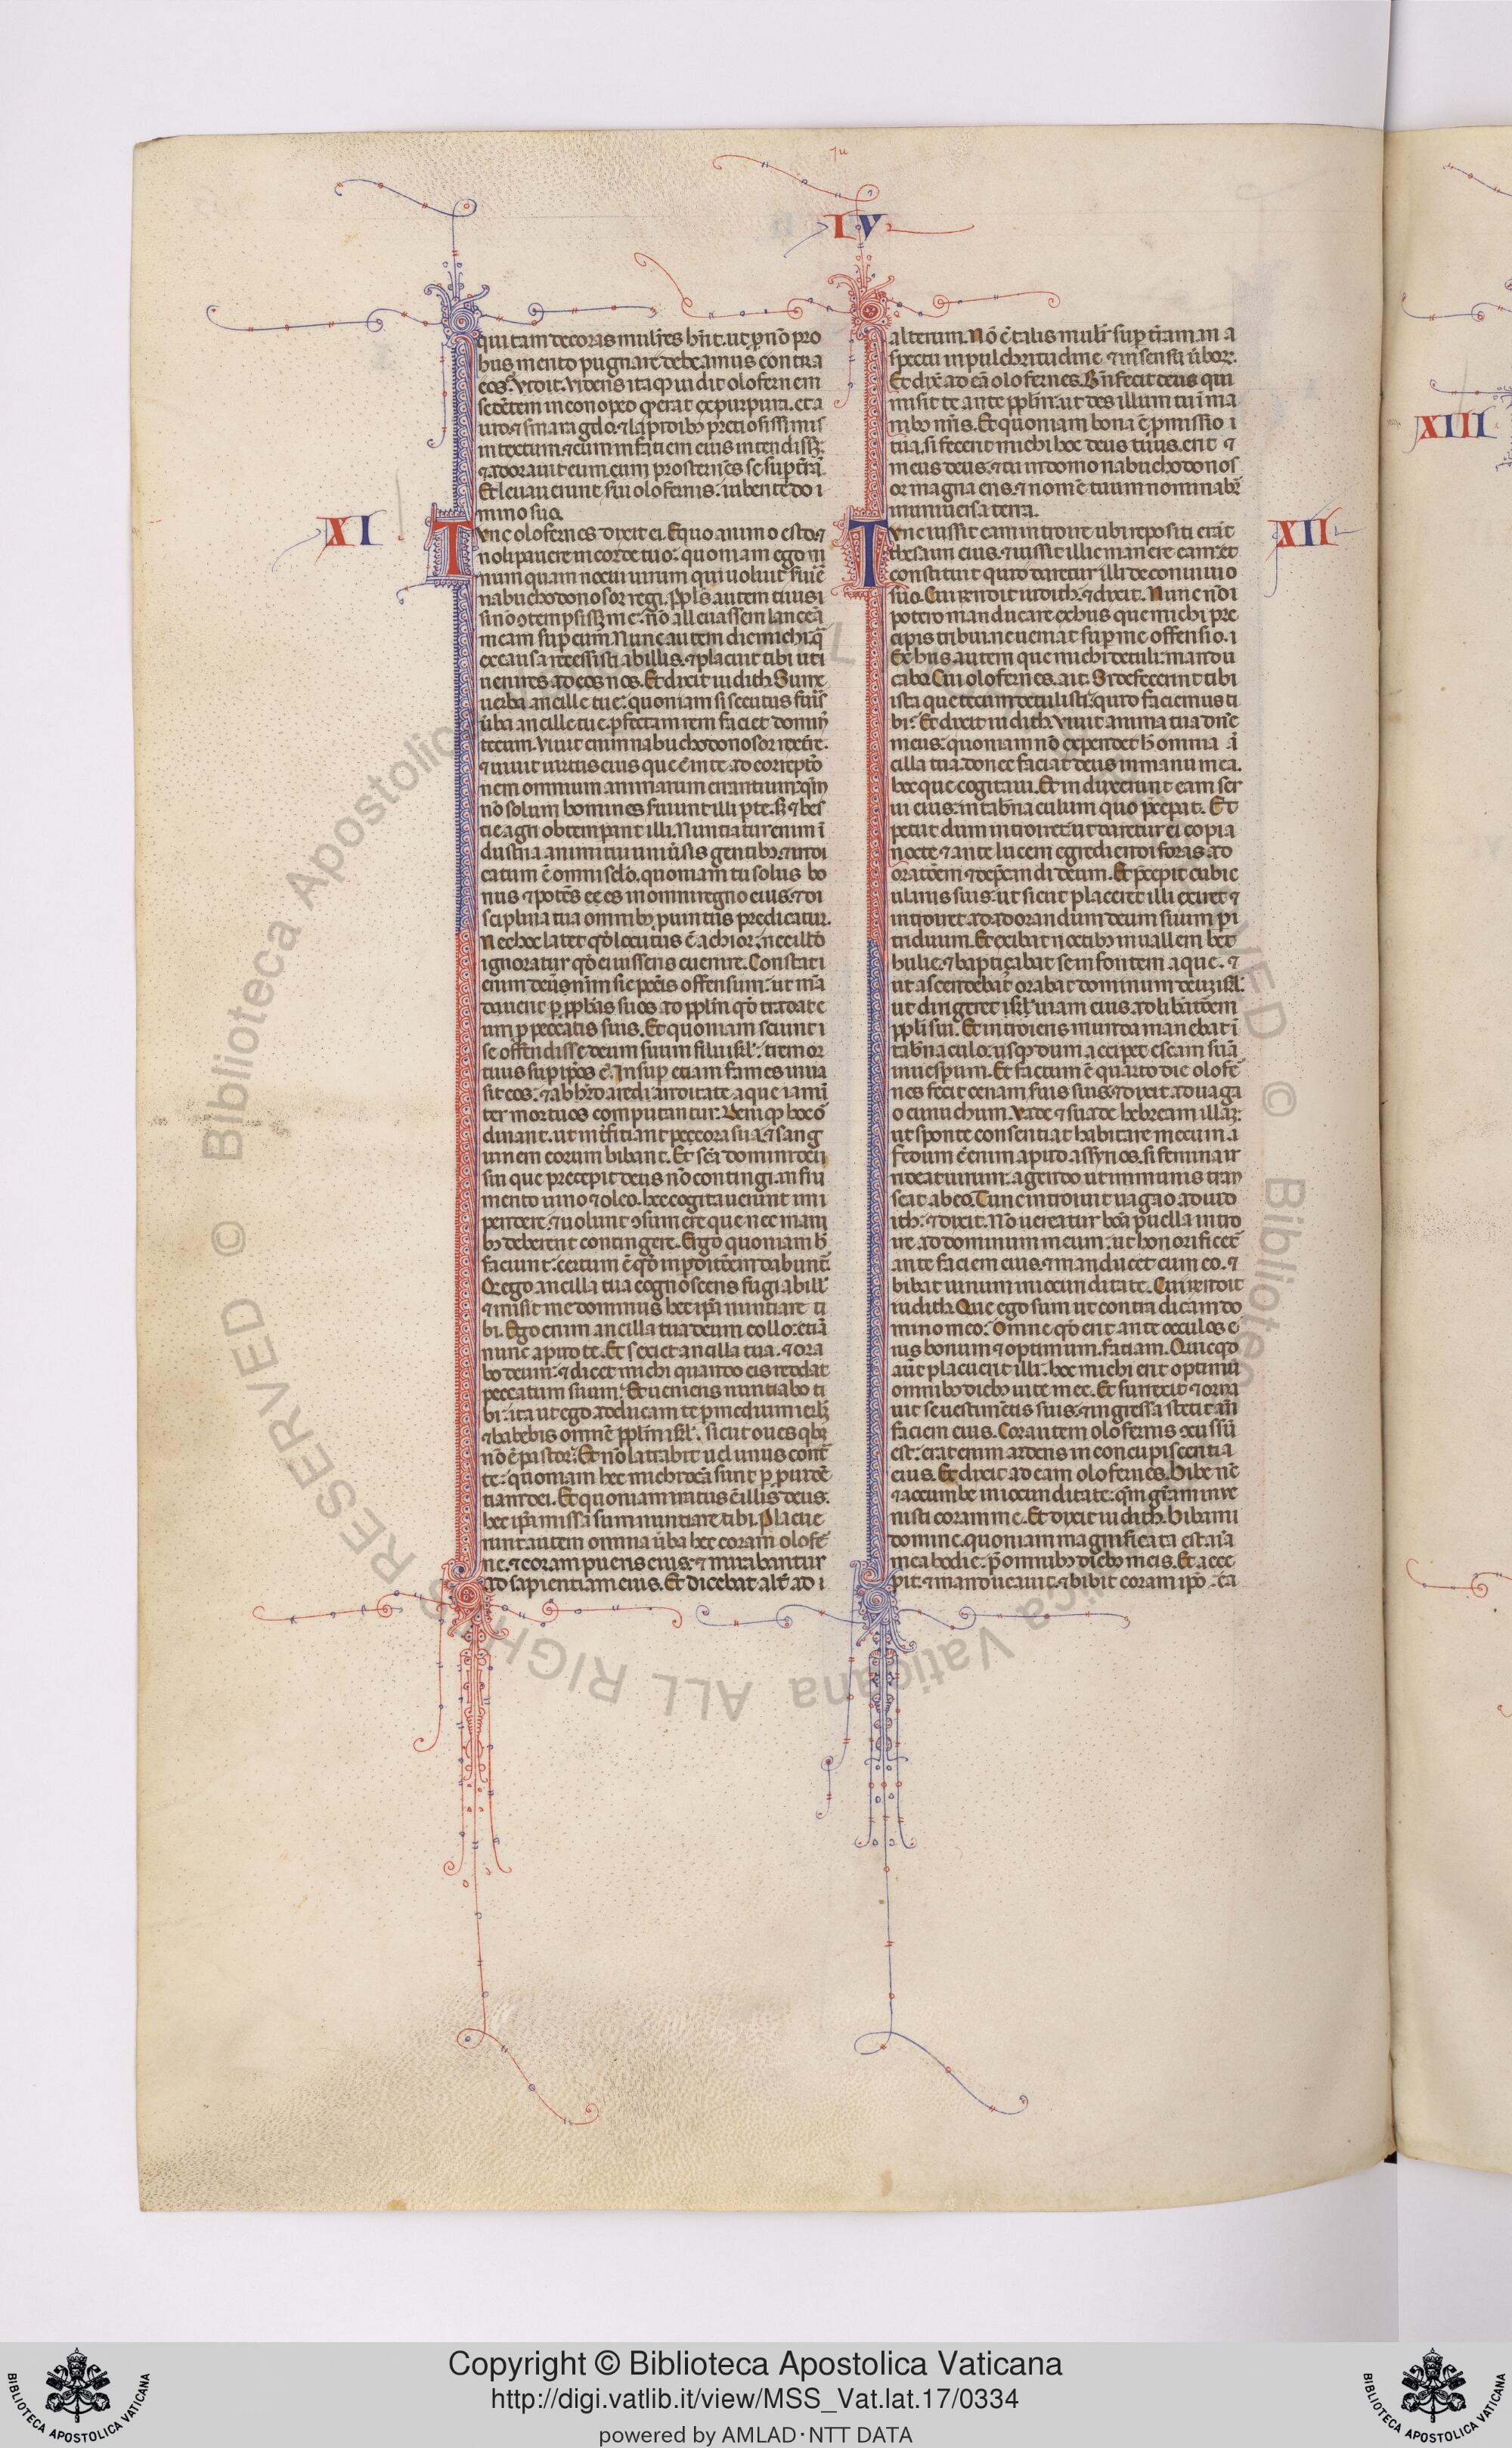 IV
qui tam decoras mulieres hn̄t. ut ꝓ nō pro
hus merito pugnare debeamus contra
eos. vidit. videns itaqꝫ iudit olofernem
sedētem in conopeo q̄ erat ex purpura. et a
uro ⁊ smaragdo. ⁊ lapidibꝫ pretiosissimis
intextum. ⁊ cum in faciem eius intendissꝫ.
⁊ adorauit eum. eum prosternēs se suꝑ t̄rā.
Et leuauerunt s̄ui olofernis. iubente do
mino suo.
XI
Tvnc olofernes dixit ei. Equo animo esto ⁊
noli pauere in corde tuo. quoniam ego n
numquam nocui uirum qui uoluit s̄uire
nabuchodonosor regi. ppl̄s autem tuus
si nō ɔtempsissꝫ me. nō alleuassem lanceā
meam suꝑ eum. Nunc autem dic michi. q̄
ex causa recessisti ab illis. ⁊ placuit tibi ut
uenires ad nos. Et dixit iudith. Sume
uerba ancille tue. quoniam si secutus fuīs
ūba ancille tue. ꝑfectam rem faciet domin̄
tecum. viuit enim nabuchodonosor rex t̄re.
⁊ uiuit uirtus eius que ē in te ad correptō
nem omnium animarum errantium. qm̄
nō solum homines s̄uiunt illi ꝑ te. sꝫ ⁊ bes
tie agri obtemꝑant illi. Nuntiatur enim ī
dustria animi tui uniūsis gentibꝫ. ⁊ indi
catum ē omni sclo. quoniam tu solus bo
nus ⁊ potēs ee es in omni regno eius. ⁊ di
sciplina tua omnibꝫ ꝓuintiis predicatur.
Nec hoc latet qd̄ locutus ē achior. nec illd̄
ignoratur qd̄ ei iusseris euenire. Constat
enim deūs nr̄m sic pecc̄is offensum. ut mā
dauerit ꝑ ꝓphetas suos ad ppl̄m qd̄ tradat e
um ꝓ peccatis suis. Et quoniam sciunt
se offendisse deum suum filii isrl̄. tremor
tuus suꝑ ipōs ē. Insuꝑ etiam fames inua
sit eos. ⁊ ab h̄rida aredi ariditate aque iam ī
ter mortuos computantur. Deniqꝫ hoc ō
dinant. ut int̄ficiant peccora sua. ⁊ sang
uinem eorum bibant. Et sc̄a domini dei
sui que precepit deus nō contingi. in fru
mento uino ⁊ oleo. hec cogitauerunt im
pendere. ⁊ uolunt ɔsumere que nec mani
bꝫ deberent contingere. Ergo quoniam h̄
faciunt. certum ē qd̄ in ꝑditōem dabunt̄.
Qd̄ ego ancilla tua cognoscens fugi ab ill̄.
⁊ misit me dominus hec ip̄a nuntiare ti
bi. Ego enim ancilla tua deum collo. etiā
nunc apud te. Et exiet ancilla tua. ⁊ ora
bo deum. ⁊ dicet michi quando eis reddat
peccatum suum. Et ueniens nuntiabo ti
bi. ita ut ego adducam te ꝑ medium ierlꝫ
⁊ habebis omnē ppl̄m isrl̄. sicut oues qbꝫ
nō ē pastor. Et nō latrabit uel unus cont̄
te. quoniam hec michi dc̄a sunt ꝑ ꝓuidē
tiam dei. Et quoniam iratus ē illis deus.
hec ip̄a missa sum nuntiare tibi. Placue
runt autem omnia ūba hec coram olofē
ne. ⁊ coram pueris eius. ⁊ mirabantur
ad sapientiam eius. Et dicebat alt̄ ad
alterum. Nō ē talis mulīr suꝑ t̄ram. in a
spectu in pulchritudine. ⁊ in sensu ūborꝫ.
Et dix̄ ad eā olofernes. Bn̄ fecit deus qui
misit te ante ppl̄m. ut des illum tu ī ma
nibꝫ nr̄is. Et quoniam bona ē ꝓmissio
tua. si fecerit michi hoc deus tuus. erit ⁊
meus deus. ⁊ tu in domo nabuchodonos
or magna eris. ⁊ nomē tuum nominabr̄
in uniuersa terra.
XII
Tvnc iussit eam introire ubi repositi erāt
thesauri eius. ⁊ iussit illic manere eam. et
constituit quid daretur illi de conuiuio
suo. Cui respondit iudith. ⁊ dixit. Nunc n̄
potero manducare ex his que michi pre
cipis tribui. ne ueniat suꝑ me offensio.
Ex his autem que michi detuli. mandu
cabo. Cui olofernes. ait. Si defecerint tibi
ista que tecum detulisti. quid faciemus ti
bi. Et dixit iudith. viuit anima tua dn̄e
meus. quoniam nō expendet h̄ omnia ā
cilla tua. donec faciat deus in manu mea.
hec que cogitaui. Et induxerunt eam ser
ui eius. in tab̄naculum quo p̄ceꝑat. Et
petiit dum introiret. ut daretur ei copia
nocte ⁊ ante lucem egrediendi foras. ad
oratōem ⁊ dep̄candi deum. Et p̄cepit cubic
ulariis suis. ut sicut placeret illi exiret ⁊
introiret ad adorandum deum suum ꝑ
triduum. Et exibat noctibꝫ in uallem bet
hulie. ⁊ baptiçabat se in fontem aque. ⁊
ut ascendebat. orabat dominum deuꝫ isrl̄.
ut dirigeret isrl̄ uiam eius. ad lib̄atōem
ppl̄i sui. Et introiens munda manebat ī
tab̄naculo. usqꝫ dum acciꝑet escam suā
in uesꝑum. Et factum ē quarto die olofē
nes fecit cenam s̄uis suis. ⁊ dixit ad uaga
o eunuchum. Vade ⁊ suade hebream illaꝫ.
ut sponte consentiat habitare mecum.
Fedum ē enim apud assyrios. si femina ir
rideat uirum. agendo ut immunis tran
seat ab eo. Tunc introiuit uagao ad iud
ith. ⁊ dixit. Nō uereatur bōa puella intro
ire ad dominum meum. ut honorificet̄
ante faciem eius. ⁊ manducet cum eo. ⁊
bibat uinum in iocunditate. Cui respondit
iudith. Que ego sum ut contradicam do
mino meo. Omne qd̄ erit ante occulos e
ius bonum ⁊ optimum. faciam. Quicqd
aut̄ placuerit illi. hoc michi erit optimū
omnibꝫ diebꝫ uite mee. Et surrexit ⁊ orna
uit se uestimētis suis. ⁊ ingressa stetit an̄
faciem eius. Cor autem olofernis ɔcussū
est. erat enim ardens in concupiscentia
eius. Et dixit ad eam olofernes. Bibe nc̄
⁊ accumbe in iocunditate. qm̄ gr̄am inue
nisti coram me. Et dixit iudith. Bibam
domine. quoniam magnificata est aīa
mea hodie. p̄ omnibꝫ diebꝫ meis. Et acce
pit. ⁊ manducauit. ⁊ bibit coram ip̄o. ea
XIII
Copyright © Biblioteca Apostolica Vaticana
http://digi.vatlib.it/view/MSS_Vat.lat.17/0334
powered by AMLAD·NTT DATA
BIBLIOTECA APOSTOLICA VATICANA
BIBLIOTECA APOSTOLICA VATICANA